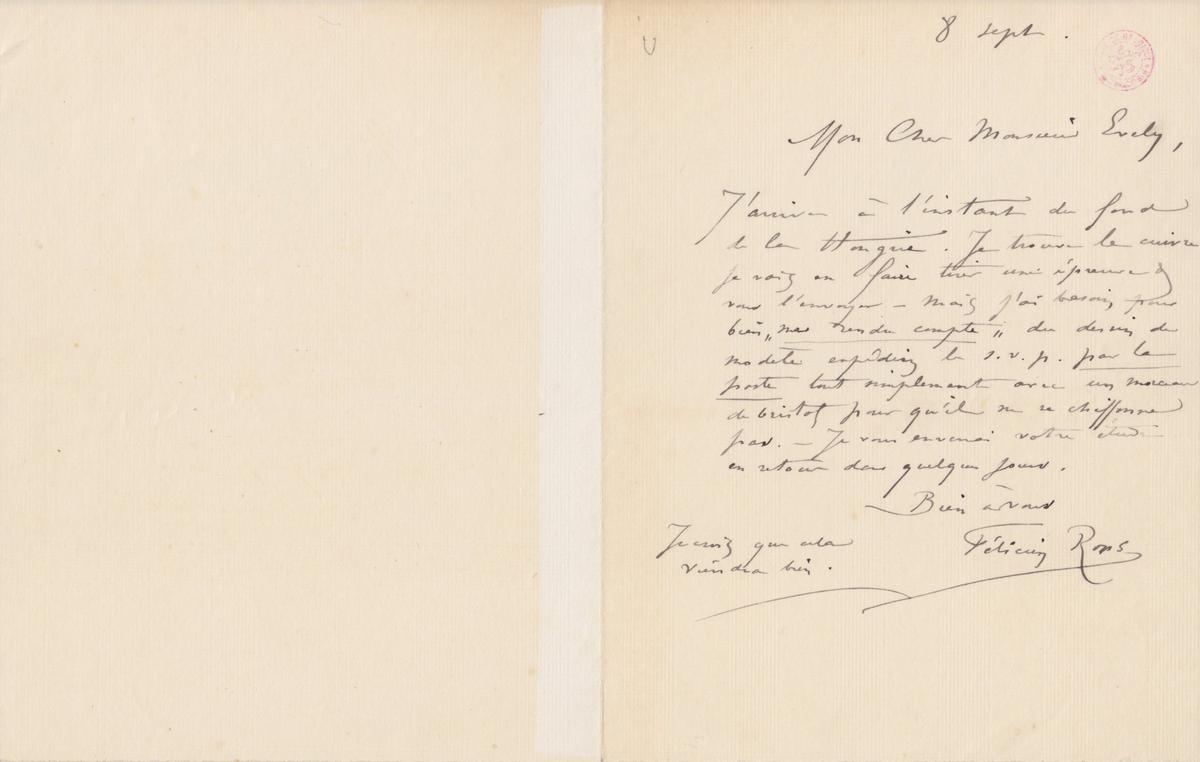 8 sept.
Mon Cher Monsieur Evely,
J'arrive à l'instant du fond
de la Hongrie. Je trouve le cuivre
je vais en faire tirer une épreuve &
vous l'envoyer — mais j'ai besoin pour
bien „me rendre compte„ du dessin du
modèle expédiez le s.v.p. par la
poste tout simplement avec un morceau
de bristol pour qu'il ne se chiffonne
pas. — Je vous enverrai votre étude
en retour dans quelques jours.
Bien à vous
Félicien Rops
Je crois que cela
viendra bien.